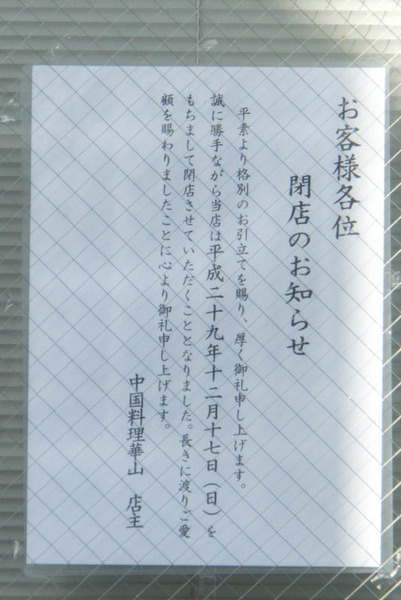 お客様各位
閉店のお知らせ
平素より格別のお引立てを賜り、厚く御礼申し上げます。
誠に勝手ながら当店は平成二十九年十二月十七日（日）を
もちまして閉店させていただくこととなりました。長きに渡りご愛
顧を賜わりましたことに心より御礼申し上げます。
中国料理華山　店主